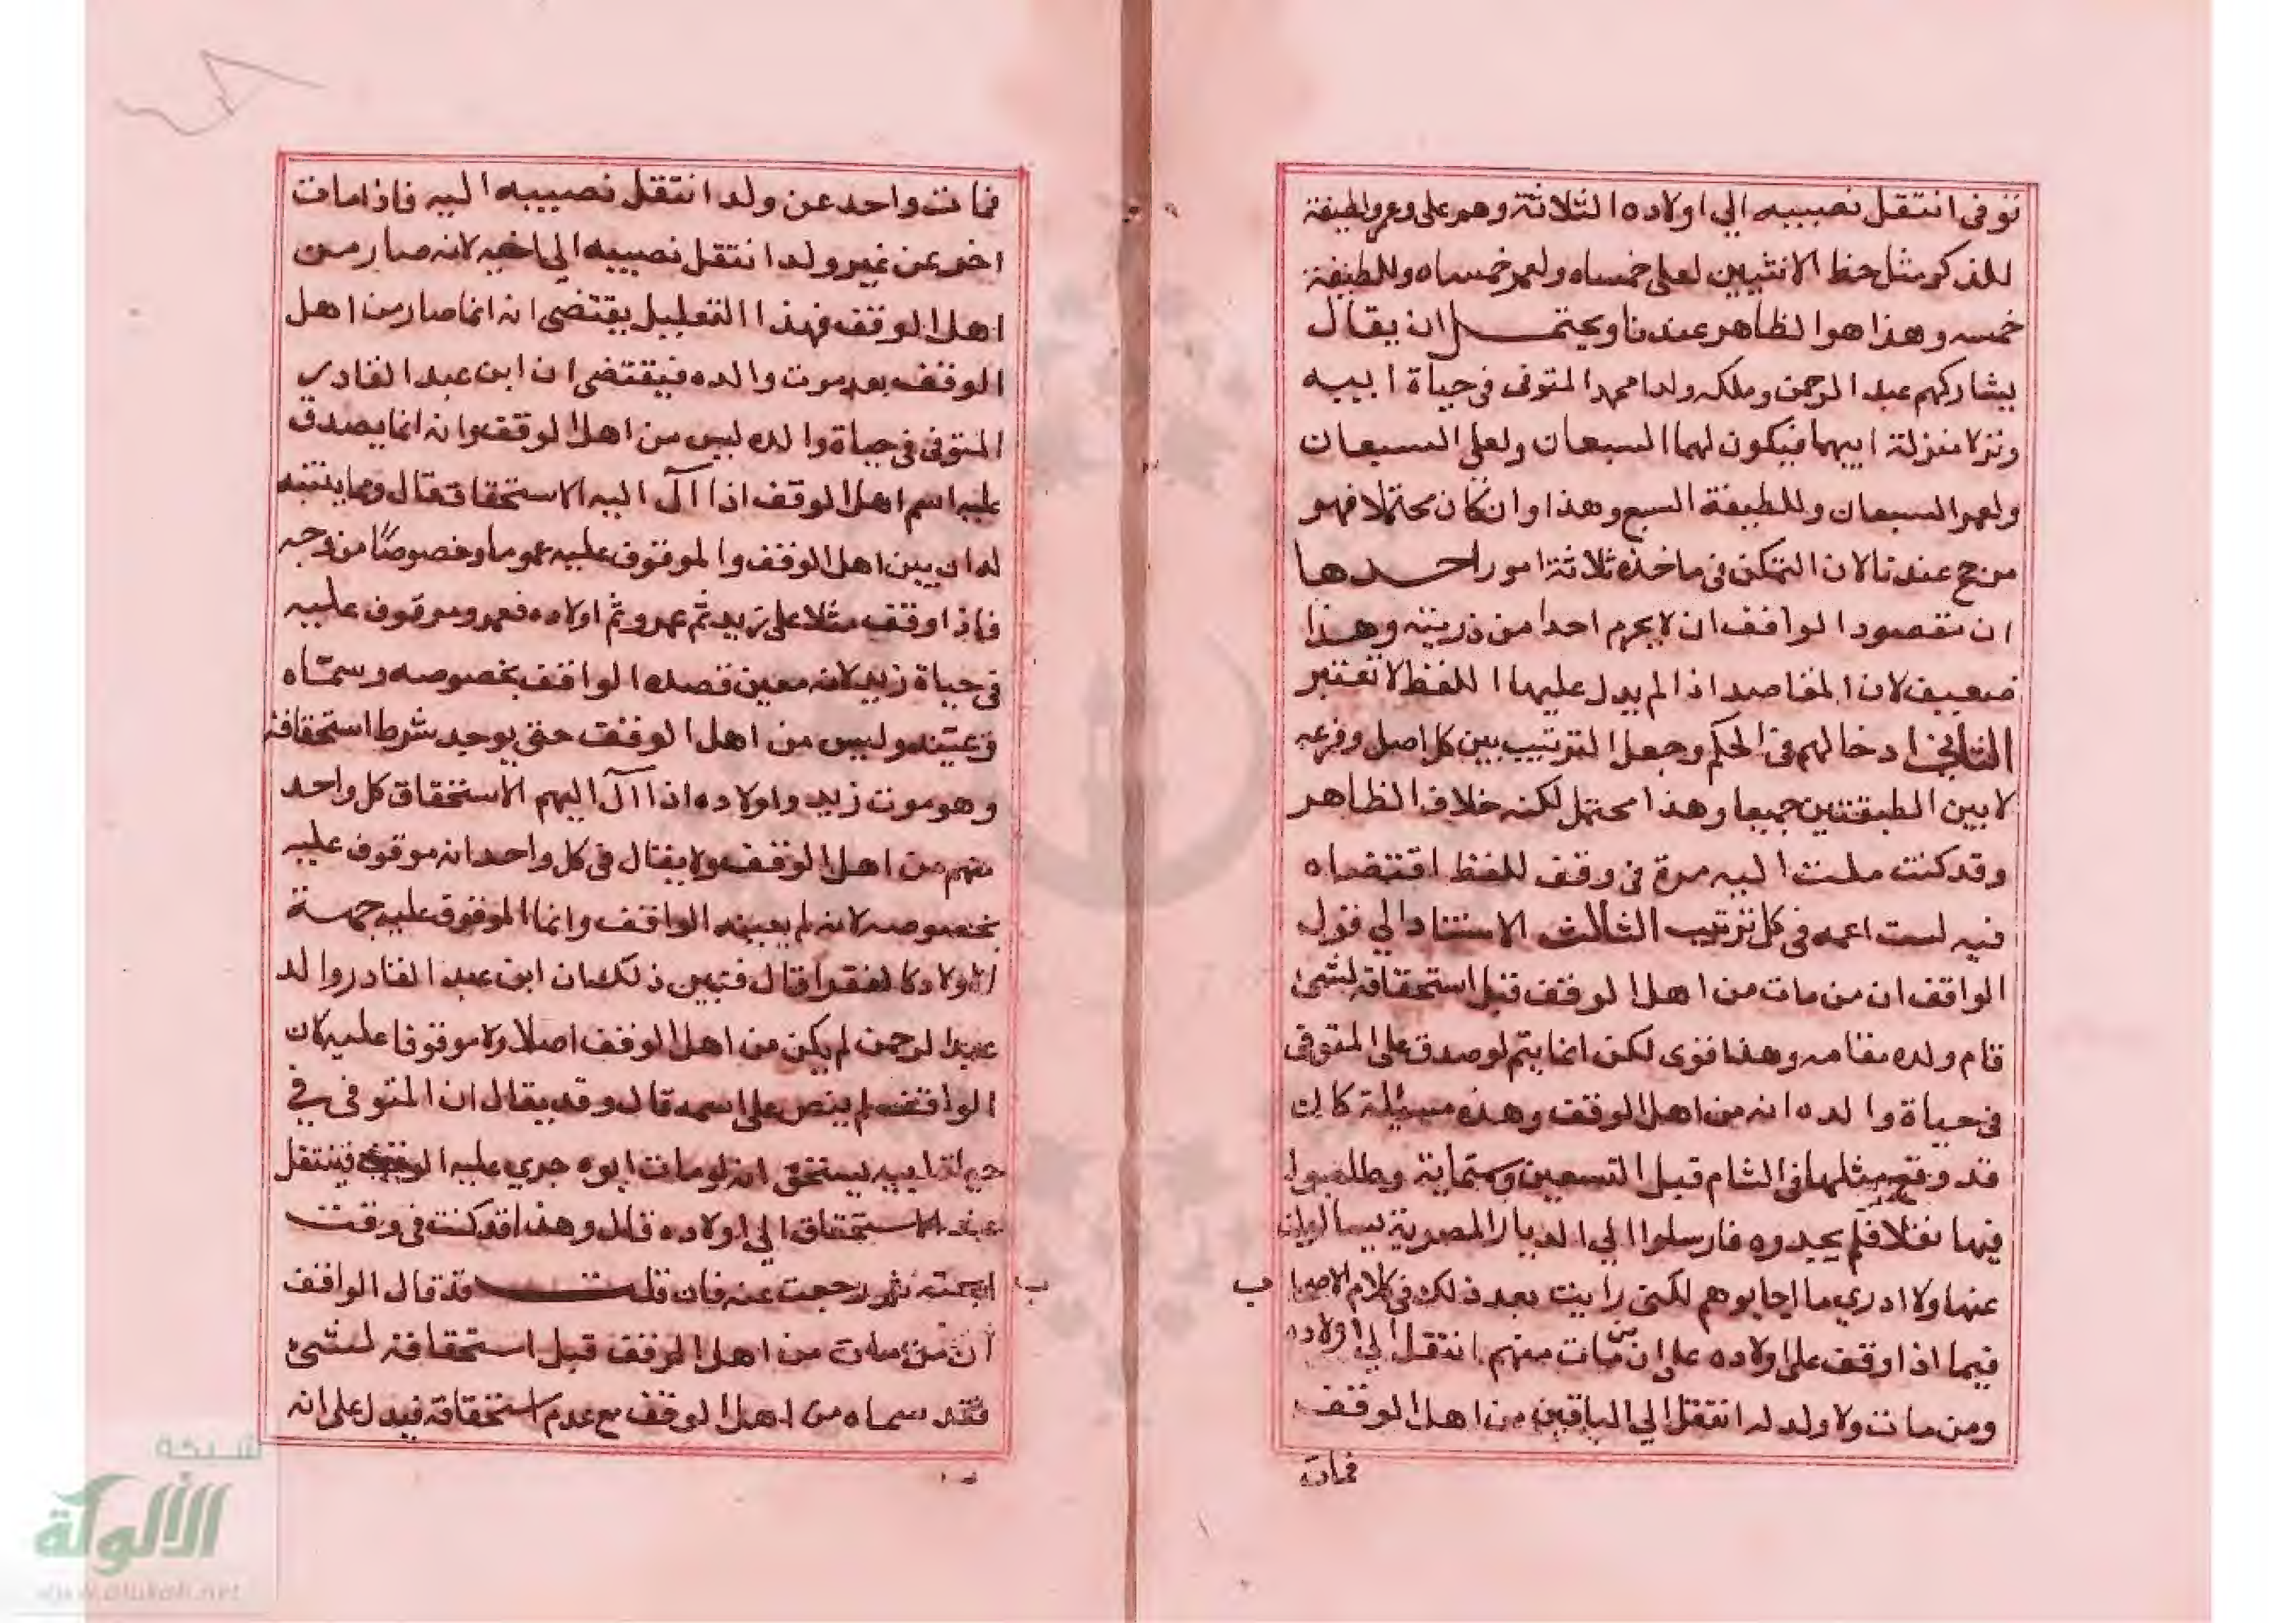 توفى انتقل نصيبه الي اولاده الثلاثة وهم علي وعمر ولطيفة
للذكر مثل حظ الانثيين لعلى خمساه ولعمر خمساه وللطيفة
خمسه وهذا هو الظاهر عندنا ويحتمل ان يقال
يشاركهم عبد الرحمن وملكه ولدا محمد المتوفى في حياة ابيه
ونزلا منزلة ابيهما فيكون لهما السبعان ولعلي السبعان
ولعمر السبعان وللطيفة السبع وهذا وان كان محتملا فهو
مرجح عندنا لان التمكن في ماخذه ثلاثة امور احدها
ان مقصود الواقف ان لا يحرم احدا من ذريته وهذا
ضعيف لان المقاصد اذا لم يدل عليها اللفظ لا تعتبر
الثاني ادخالهم في الحكم وجعل الترتيب بين كل اصل وفرعه
لا بين الطبقتين جميعا وهذا محتمل لكنه خلاف الظاهر
وقد كنت ملت اليه مرة في وقف للفظ اقتضاه
فيه لست اعمه في كل ترتيب الثالث الاستناد الي قول
الواقف ان من مات من اهل الوقف قبل استحقاقه لشئ
قام ولده مقامه وهذا قوى لكن انما يتم لو صدق على المتوفى
في حياة والده انه من اهل الوقف وهذه مسئلة كانت
قد وقع مثلها في الشام قبل التسعين وستماية وطلبوا
فيها نقلا فلم يجدوه فارسلوا الي الديار المصرية يسالون
عنها ولا ادري ما اجابوهم لكني رايت بعد ذلك في كلام الاصحاب
فيما اذا وقف على اولاده على ان من مات منهم انتقل الي اولاده
ومن مات ولا ولد له انتقل الي الباقين من اهل الوقف
فمات
فمات واحد عن ولد انتقل نصيبه اليه فاذا مات
اخر عن غير ولد انتقل نصيبه الي اخيه لانه صار من
اهل الوقف فهذا التعليل يقتضي انه انما صار من اهل
الوقف بعد موت والده فيقتضى ان ابن عبد القادر
المتوفى في حياة والده ليس من اهل الوقف وانه انما يصدق
عليه اسم اهل الوقف اذا آل اليه الاستحقاق قال ومما يتنبه
له ان بين اهل الوقف والموقوف عليه عموما وخصوصًا من وجه
فاذا وقف مثلا على زيد ثم عمرو ثم اولاده فعمرو موقوف عليه
في حياة زيد لانه معين قصده الواقف بخصوصه وسمّاه
وعيّنه وليس من اهل الوقف حتى يوجد شرط استحقاقه
وهو موت زيد واولاده اذا آل اليهم الاستحقاق كل واحد
منهم من اهل الوقف ولا يقال في كل واحد انه موقوف عليه
بخصوصه لانه لم يعينه الواقف وانما الموقوف عليه جهة
الاولاد كالفقرا قال فتبين ذلك ان ابن عبد القادر والد
عبد الرحمن لم يكن من اهل الوقف اصلا ولا موقوفا عليه لان
الواقف لم ينص على اسمه قال وقد يقال ان المتوفى في
حياة ابيه يستحق انه لو مات ابوه جري عليه الوقف فينتقل
عنه الاستحقاق الي اولاده قال وهذا قد كنت في وقت
ابحثه ثم رجعت عنه فان قلت قد قال الواقف
ان من مات من اهل الوقف قبل استحقاقه لشئ
فقد سماه من اهل الوقف مع عدم استحقاقه فيدل على انه
شبكة
الألوكة
www.alukah.net